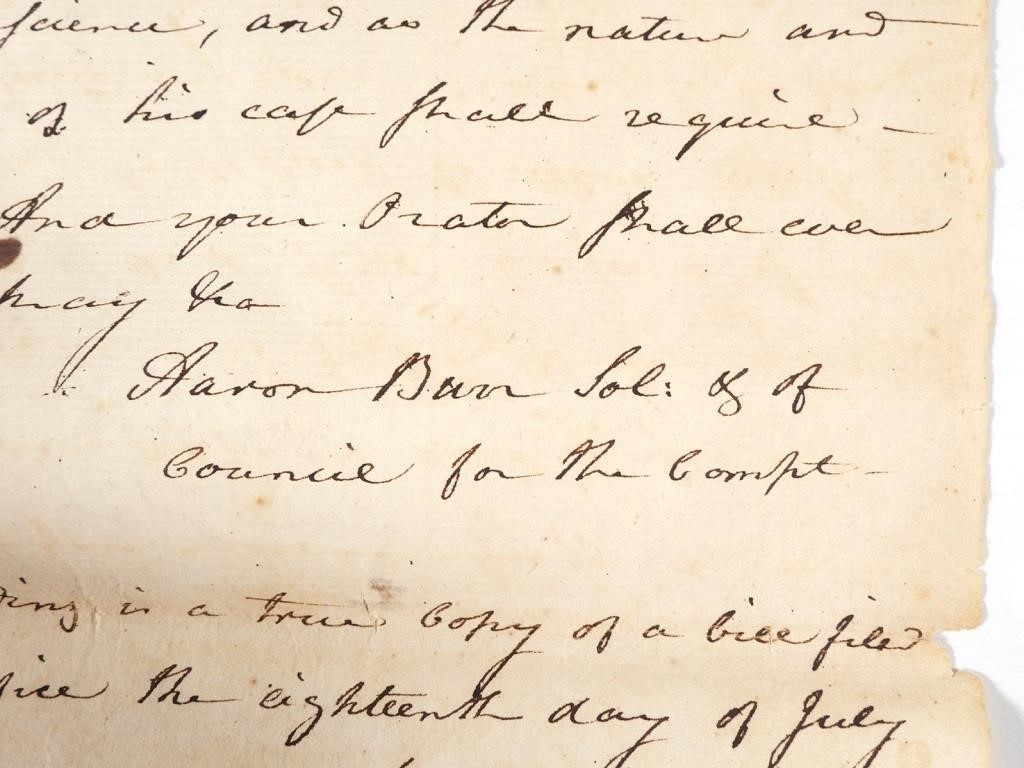 science, and as the nature and
of his case shall require -
And your Orator shall ever
pray &c
Aaron Burr Sol: & of
Council for the Compt -
ding is a true Copy of a bill filed
fice the eighteenth day of July